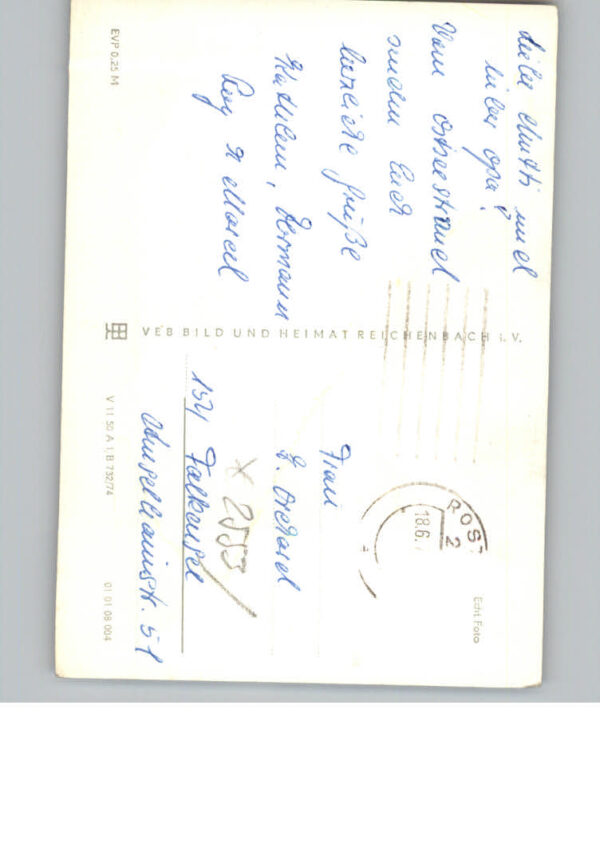 Liebe Mutti und
lieber Opa!
Vom Ostseestrand
senden Euch
herzliche Grüße
Kathleen, Hermann
Roy & Marcel
EVP 0,25 M
VEB BILD UND HEIMAT REICHENBACH i. V.
POST
2
18.6.
Echt Foto
Frau
x 2553
154 Falkensee
51
V 11 50 A 1, B 732/74
01 01 08 004